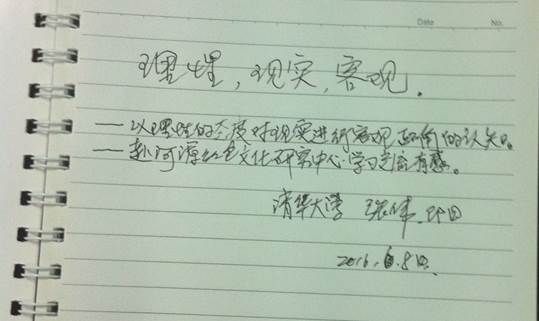 Date No.
理性，现实，客观．
——以理性的态度对现实进行客观正确的认知。
——赴河潭红色文化研究中心学习交流有感。
清华大学 张伟
2016.6.8日